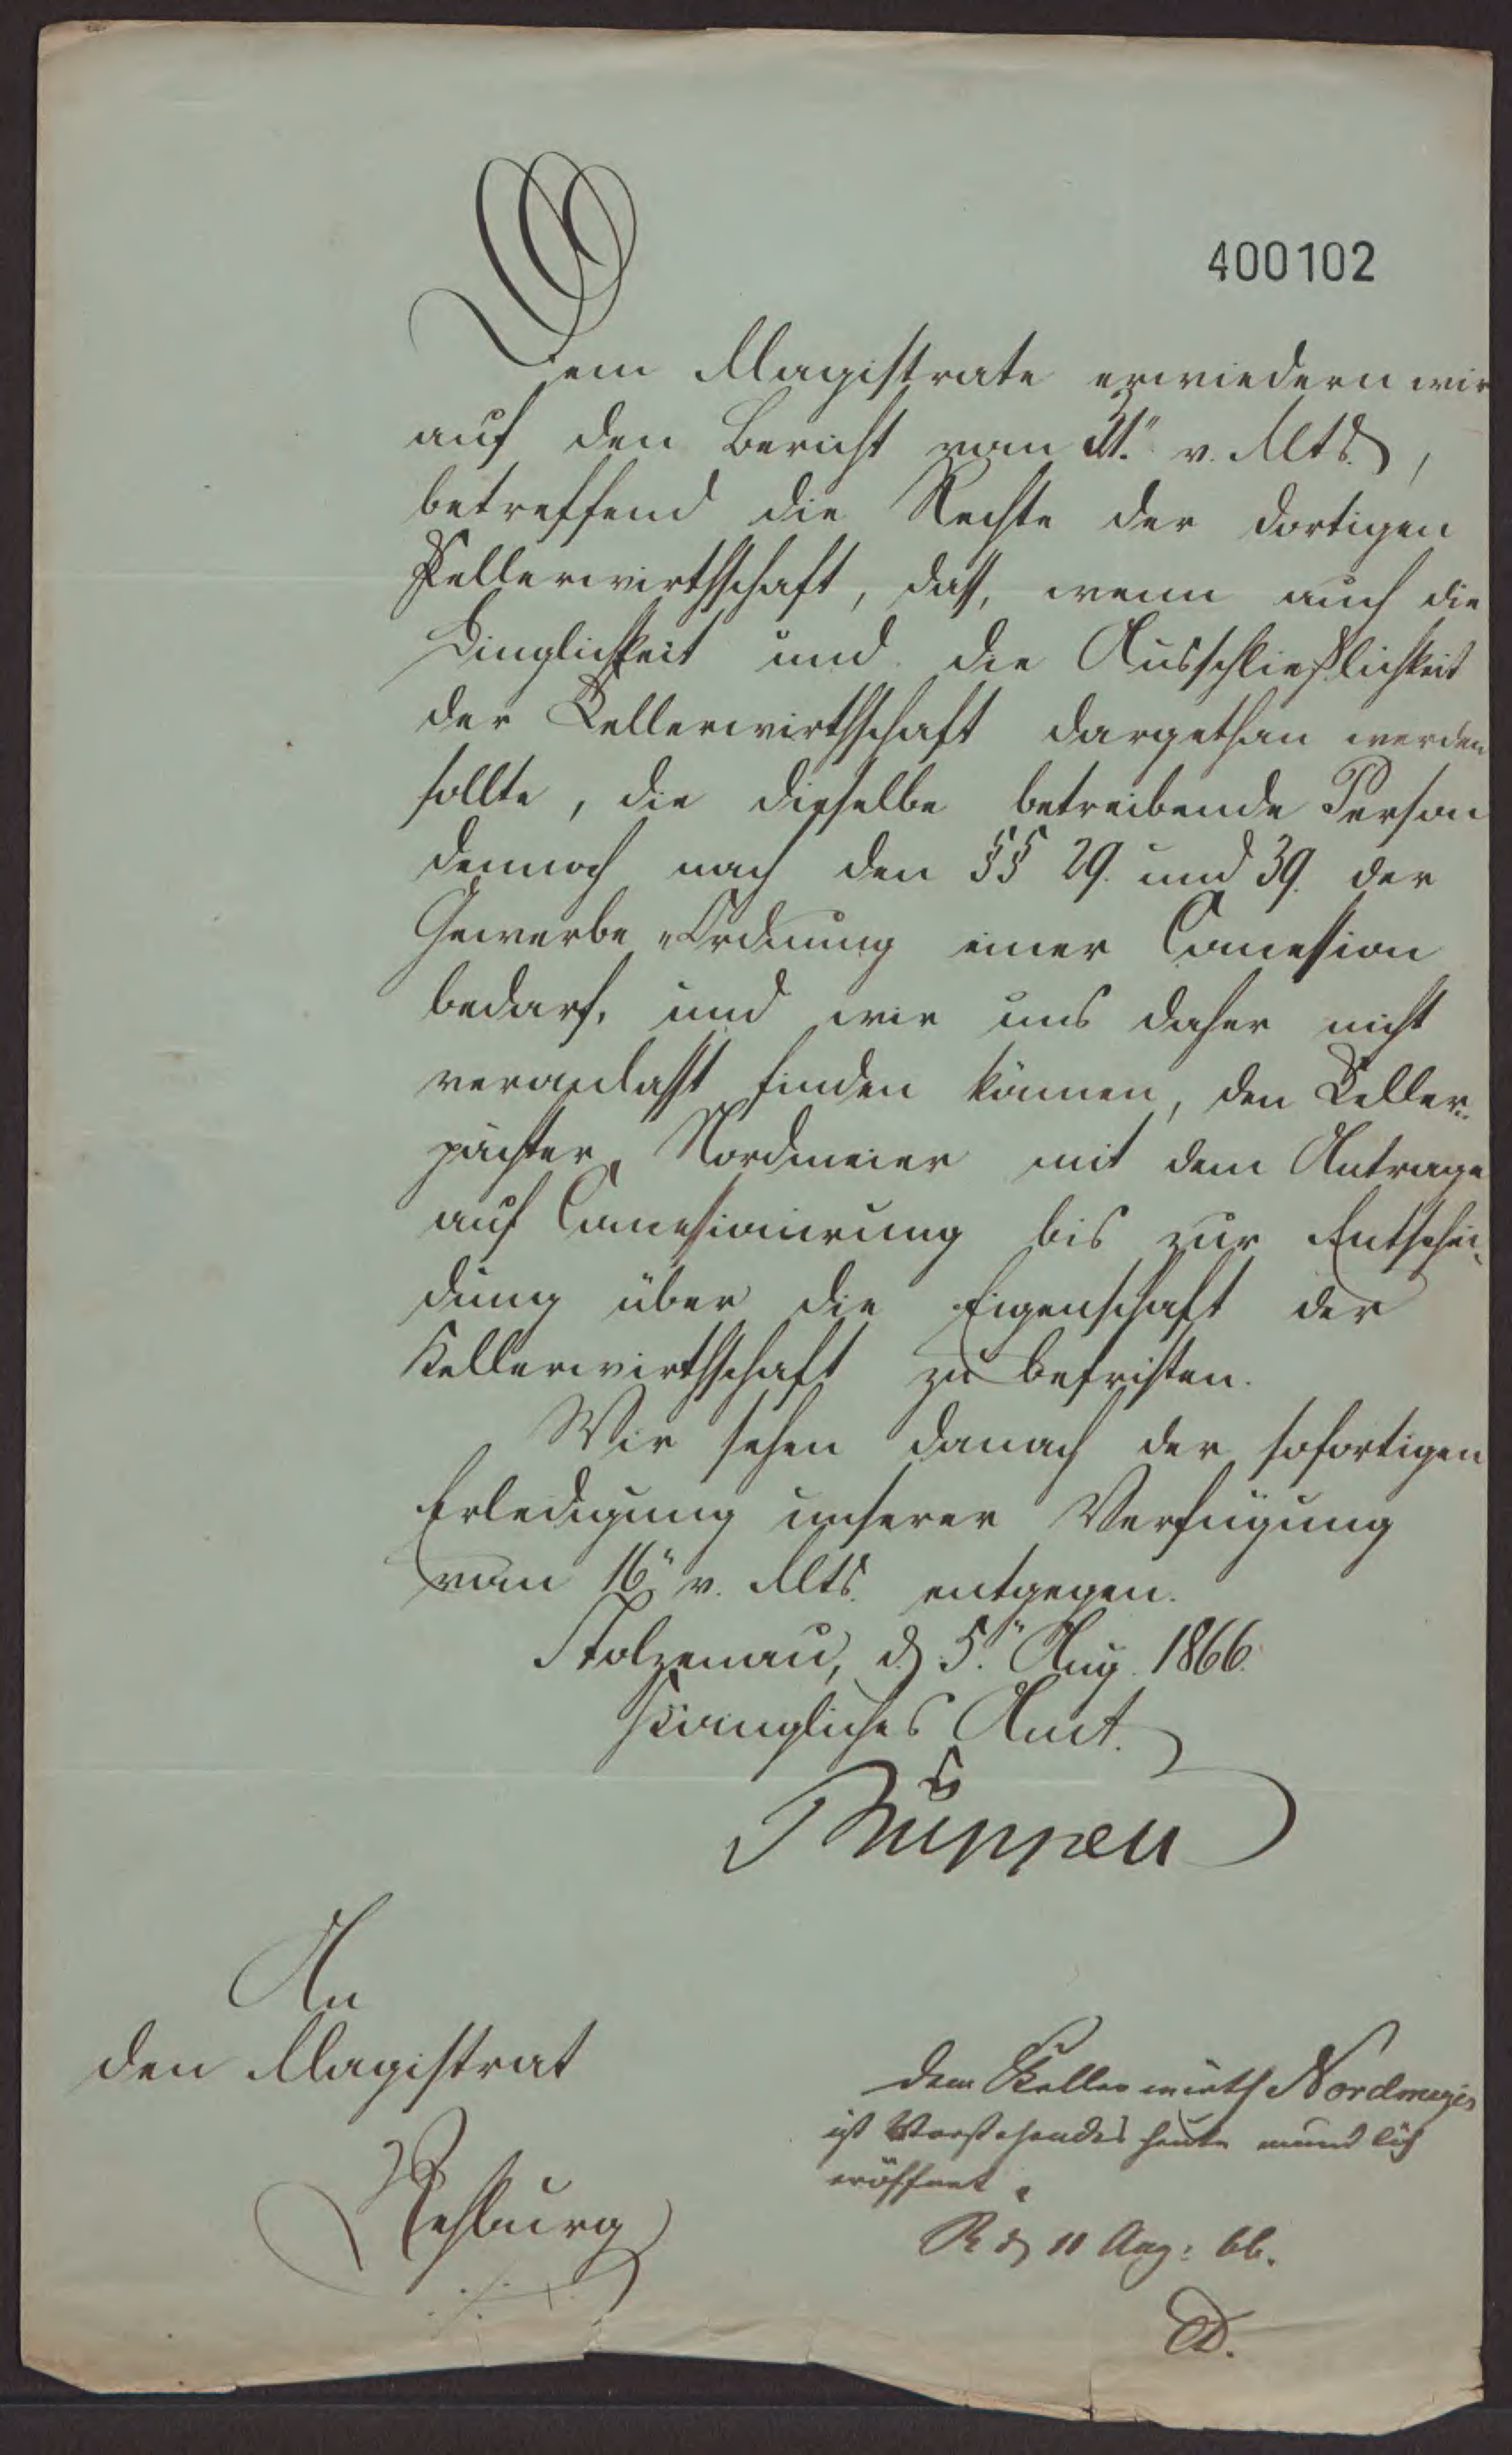 400102
Dem Magistrate erwiedern wir
auf den Bericht vom 31." v. Mts.,
betreffend die Rechte der dortigen
Kellerwirthschaft, daß, wenn auch die
Dinglichkeit und die Ausschließlichkeit
der Kellerwirthschaft dargethan werden
sollte, die dieselbe betreibende Person
dennoch nach den §§ 29. und 39. der
Gewerbe-Ordnung einer Concession
bedarf, und wir uns daher nicht
veranlaßt finden können, den Keller-
pächter Nordmeier mit dem Antrage
auf Concessionirung bis zur Entschei-
dung über die Eigenschaft der
Kellerwirthschaft zu befristen.
Wir sehen danach der sofortigen
Erledigung unserer Verfügung
vom 16." v. Mts. entgegen.
Stolzenau, d. 5." Aug. 1866.
Königliches Amt.
An
den Magistrat
Rehburg
Dem Kellerwirth Nordmeyer
ist Vorstehendes heute mündlich
eröffnet.
R. d. 11 Aug: 66.
D.